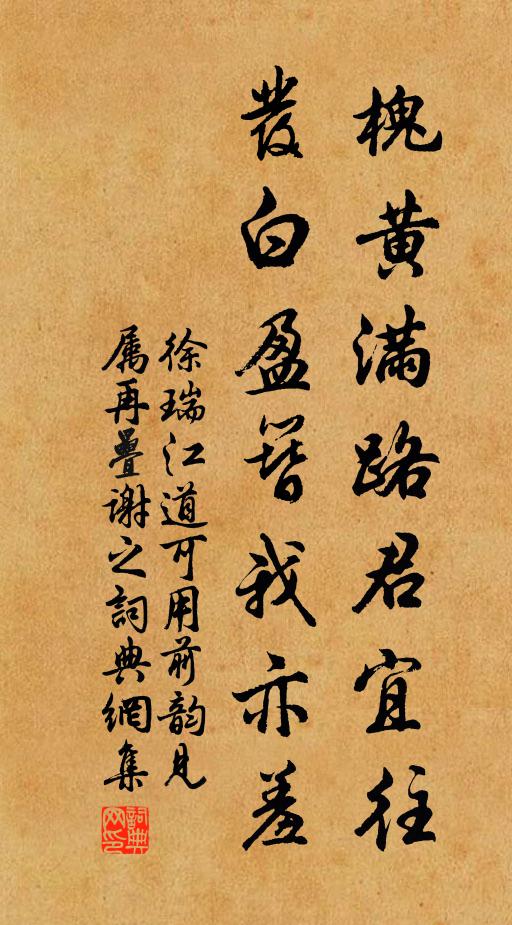 槐黄满路君宜往
发白盈簪我亦羞
徐瑞江道可用前韵见
属再叠谢之词典网集
词典网印